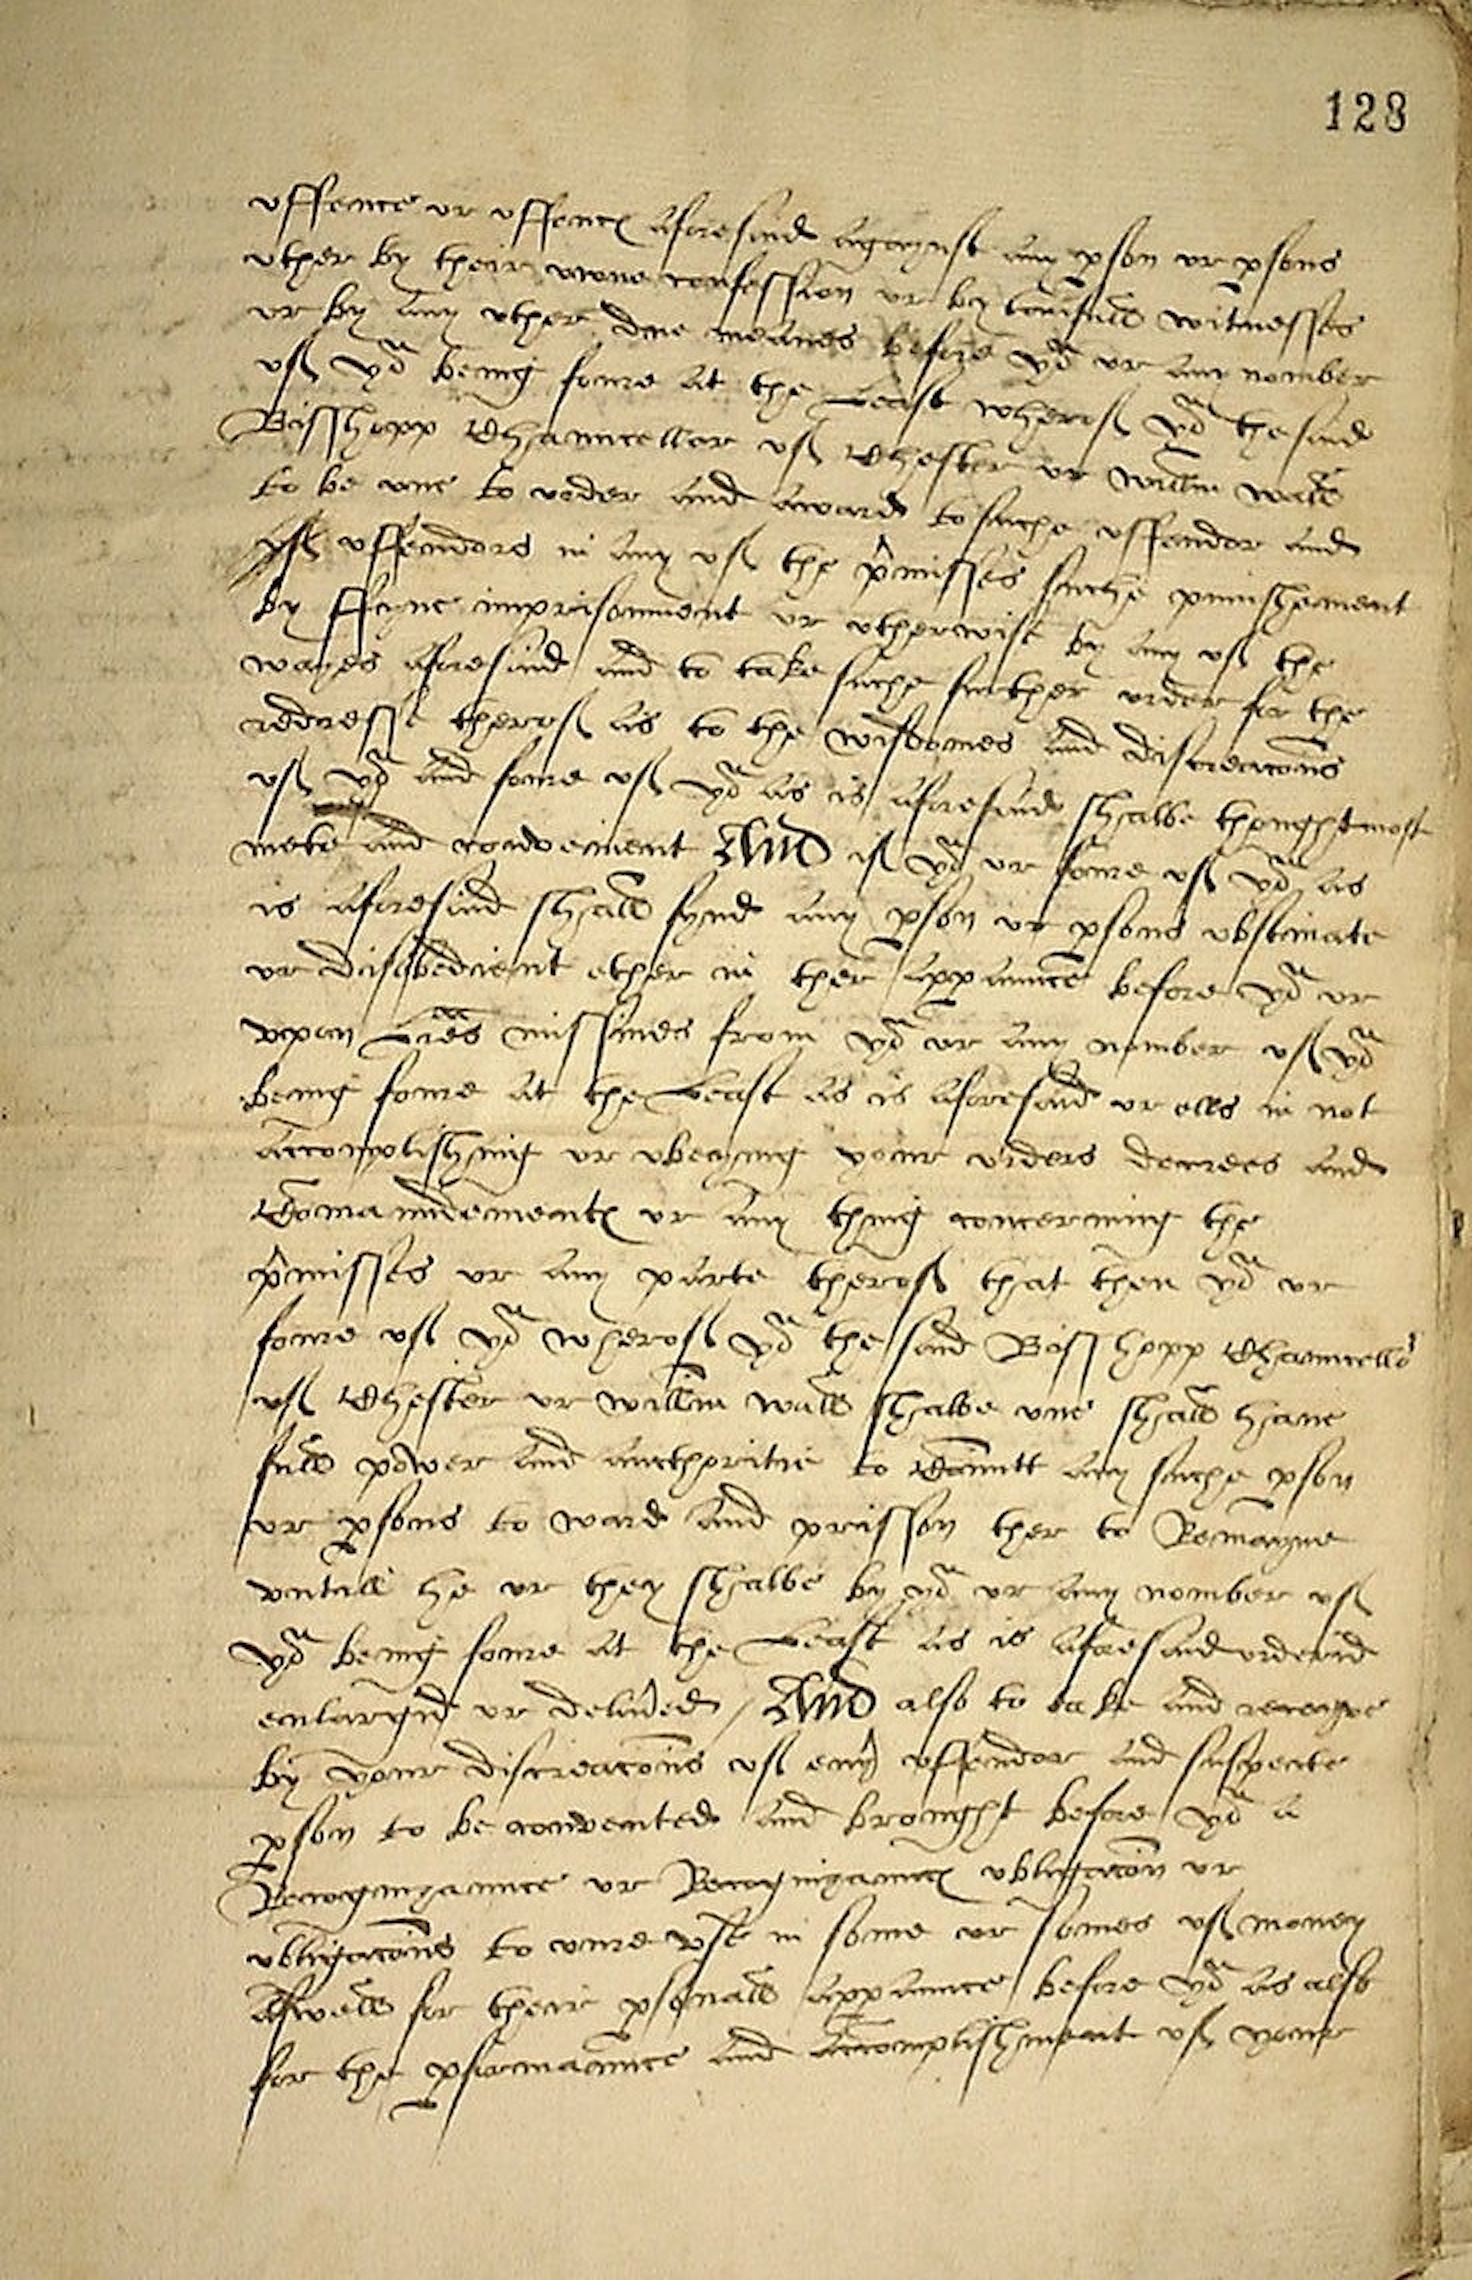 128
offence or offencꝭ aforesaid agaynst any pson or psons
other by their owne confession or by witnesses
or by any other due meanes before yoᵘ or any nomber
of yoᵘ being foure at the Least wherof yoᵘ the said
Bisshopp Chauncellor of Chester or Willm Wall
to be one to order and award to suche offendor and
offendors in any of the pmisses suche punishement
by ffyne imprisonment or otherwise by any of the
wayes aforesaid and to take suche further order for the
redresse therof as to the wisdomes and discreacons
of yoᵘ and foure of yoᵘ as is aforesaid shalbe thought most
mete and convenient And if yoᵘ or foure of yoᵘ as
is aforesaid shall fynd any pson or psons obstinate
or disobedient ether in ther appaunce before yoᵘ or
vpon Lres missives from yoᵘ or any nomber of yoᵘ
being foure at the Least as is aforesaid or ells in not
accomplishing or obeying your orders decrees and
Comaundementꝭ or any thing concerning the
pmisses or any parte therof that then yoᵘ or
foure of yoᵘ wherof yoᵘ the said Bisshopp Chauncello
of Chester or Willm Wall shalbe one shall haue
full power and aucthoritie to Comitt any suche pson
or psons to ward and prisson ther to Remayne
vntill he or they shalbe by yoᵘ or any nomber of
yoᵘ being foure at the Least as is aforesaid orderid
enlargid or deliued / And also to take and receyve
by your discreacons of euy offendor and suspecte
pson to be convented and brought before yoᵘ a
Recognizaunce or Recognizauncꝭ obligacon or
obligacons to oure vse in some or somes of money
aswell for their psonall appaunce before yoᵘ as also
for the pformaunce and accomplishment of your